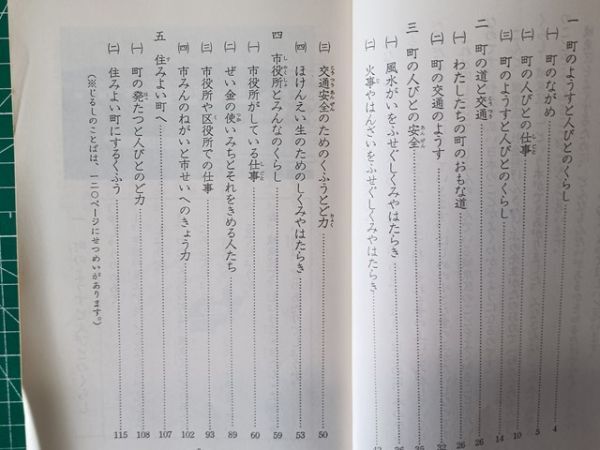 一 町のようすと人びとのくらし……4
㈠ 町のながめ……5
㈡ 町の人びとの仕事……10
㈢ 町のようすと人びとのくらし……14
二 町の道と交通……26
㈠ わたしたちの町のおもな道……26
㈡ 町の交通のようす……
三 町の人びとの安全……
㈠ 風水がいをふせぐしくみやはたらき……
㈡ 火事やはんざいをふせぐしくみやはたらき……
㈢ 交通安全のためのくふうとど力……50
㈣ ほけんえい生のためのしくみやはたらき……53
四 市役所とみんなのくらし……59
㈠ 市役所がしている仕事……60
㈡ ぜい金の使いみちとそれをきめる人たち……89
㈢ 市役所や区役所での仕事……93
㈣ 市みんのねがいと市せいへのきょう力……102
五 住みよい町へ……107
㈠ 町の発たつと人びとのど力……108
㈡ 住みよい町にするくふう……115
(※じるしのことばは、一二〇ページにせつめいがあります。)